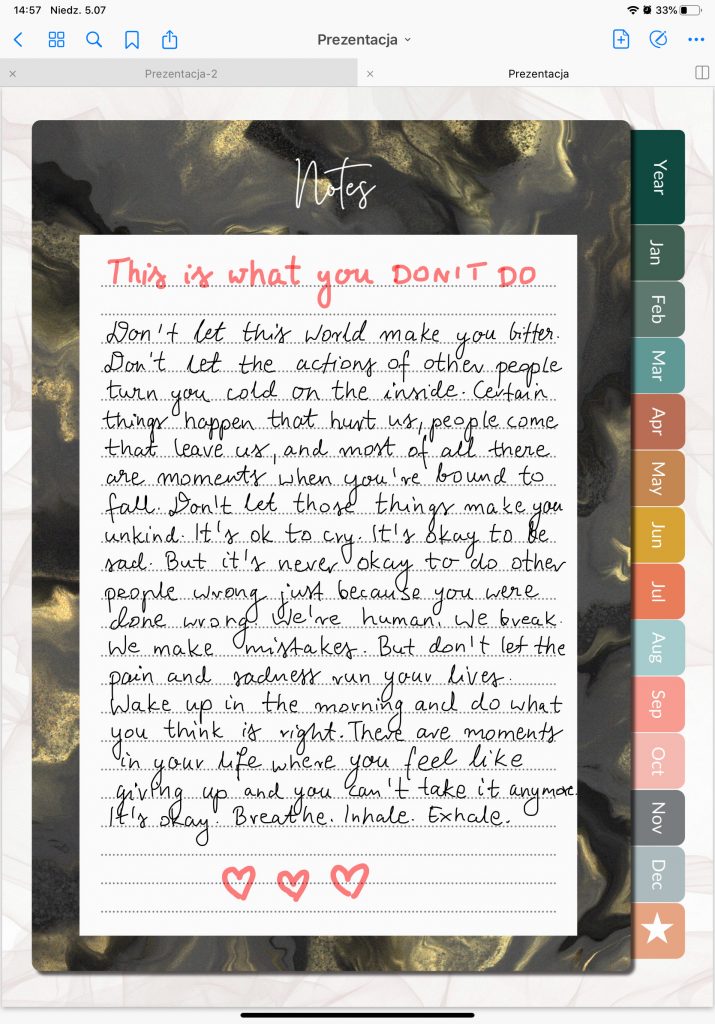 14:57 Niedz. 5.07 33%
Prezentacja
Prezentacja-2
Prezentacja
Notes
This is what you DON'T DO
Don't let this world make you bitter.
Don't let the actions of other people
turn you cold on the inside. Certain
things happen that hurt us, people come
that leave us, and most of all there
are moments when you're bound to
fall. Don't let those things make you
unkind. It's ok to cry. It's okay to be
sad. But it's never okay to do other
people wrong just because you were
done wrong. We're human. We break.
We make mistakes. But don't let the
pain and sadness run your lives.
Wake up in the morning and do what
you think is right. There are moments
in your life where you feel like
giving up and you can't take it anymore.
It's okay. Breathe. Inhale. Exhale.
Year
Jan
Feb
Mar
Apr
May
Jun
Jul
Aug
Sep
Oct
Nov
Dec